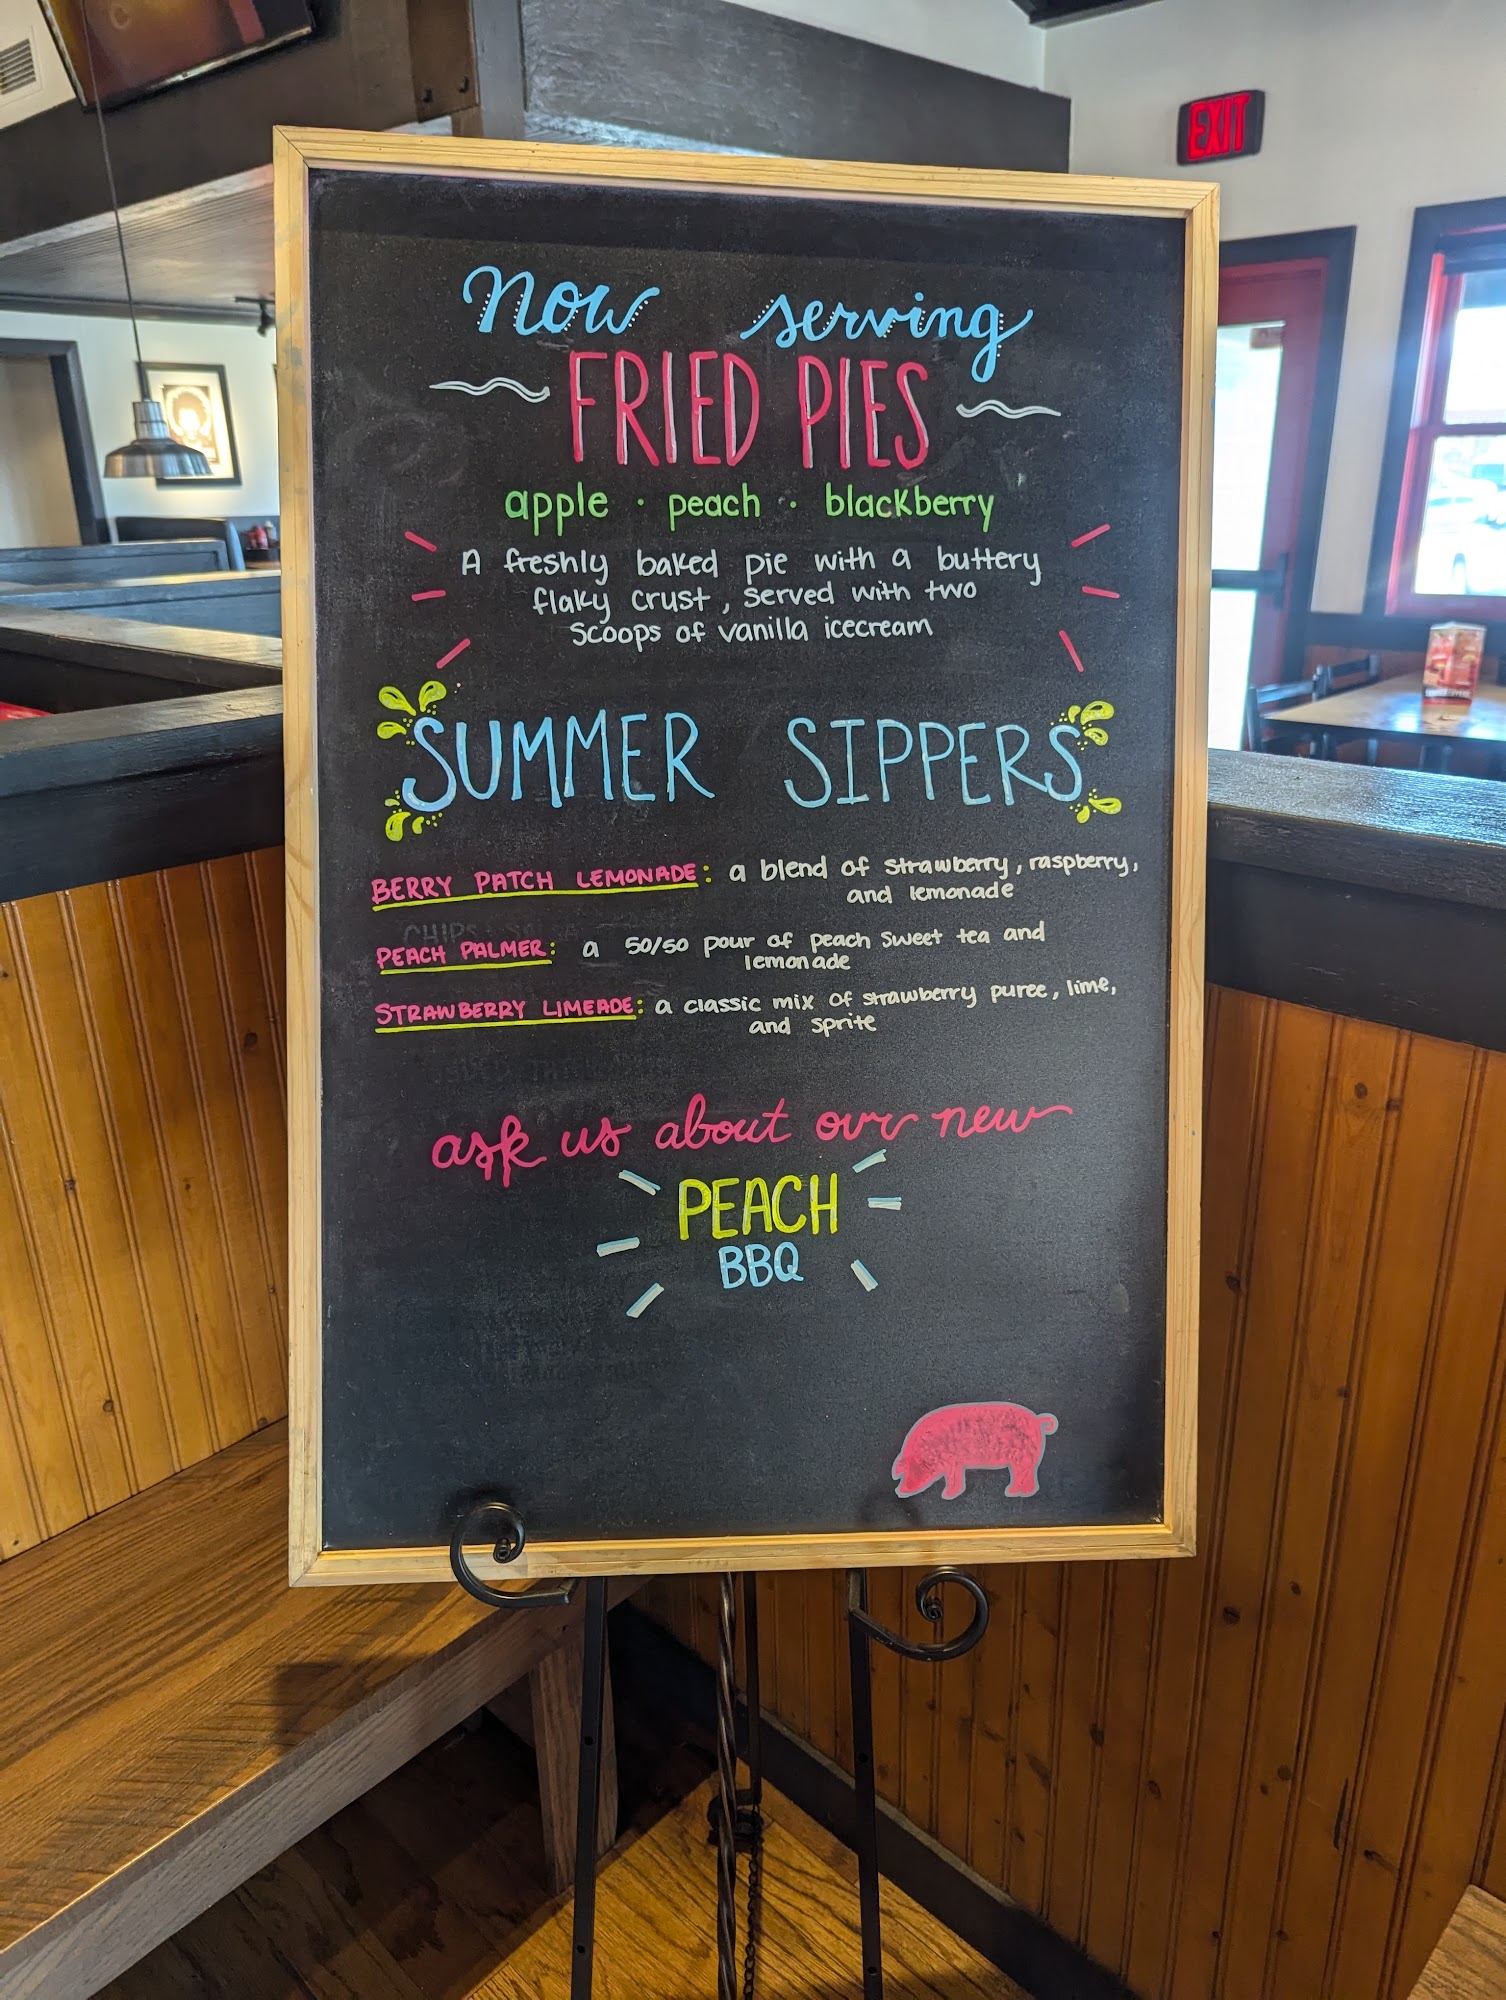 EXIT
Now serving
FRIED PIES
apple · peach · blackberry
A freshly baked pie with a buttery
flaky crust, served with two
scoops of vanilla icecream
SUMMER SIPPERS
BERRY PATCH LEMONADE: a blend of strawberry, raspberry,
and lemonade
PEACH PALMER: a 50/50 pour of peach sweet tea and
lemonade
STRAWBERRY LIMEADE: a classic mix of strawberry puree, lime,
and sprite
ask us about our new
PEACH
BBQ